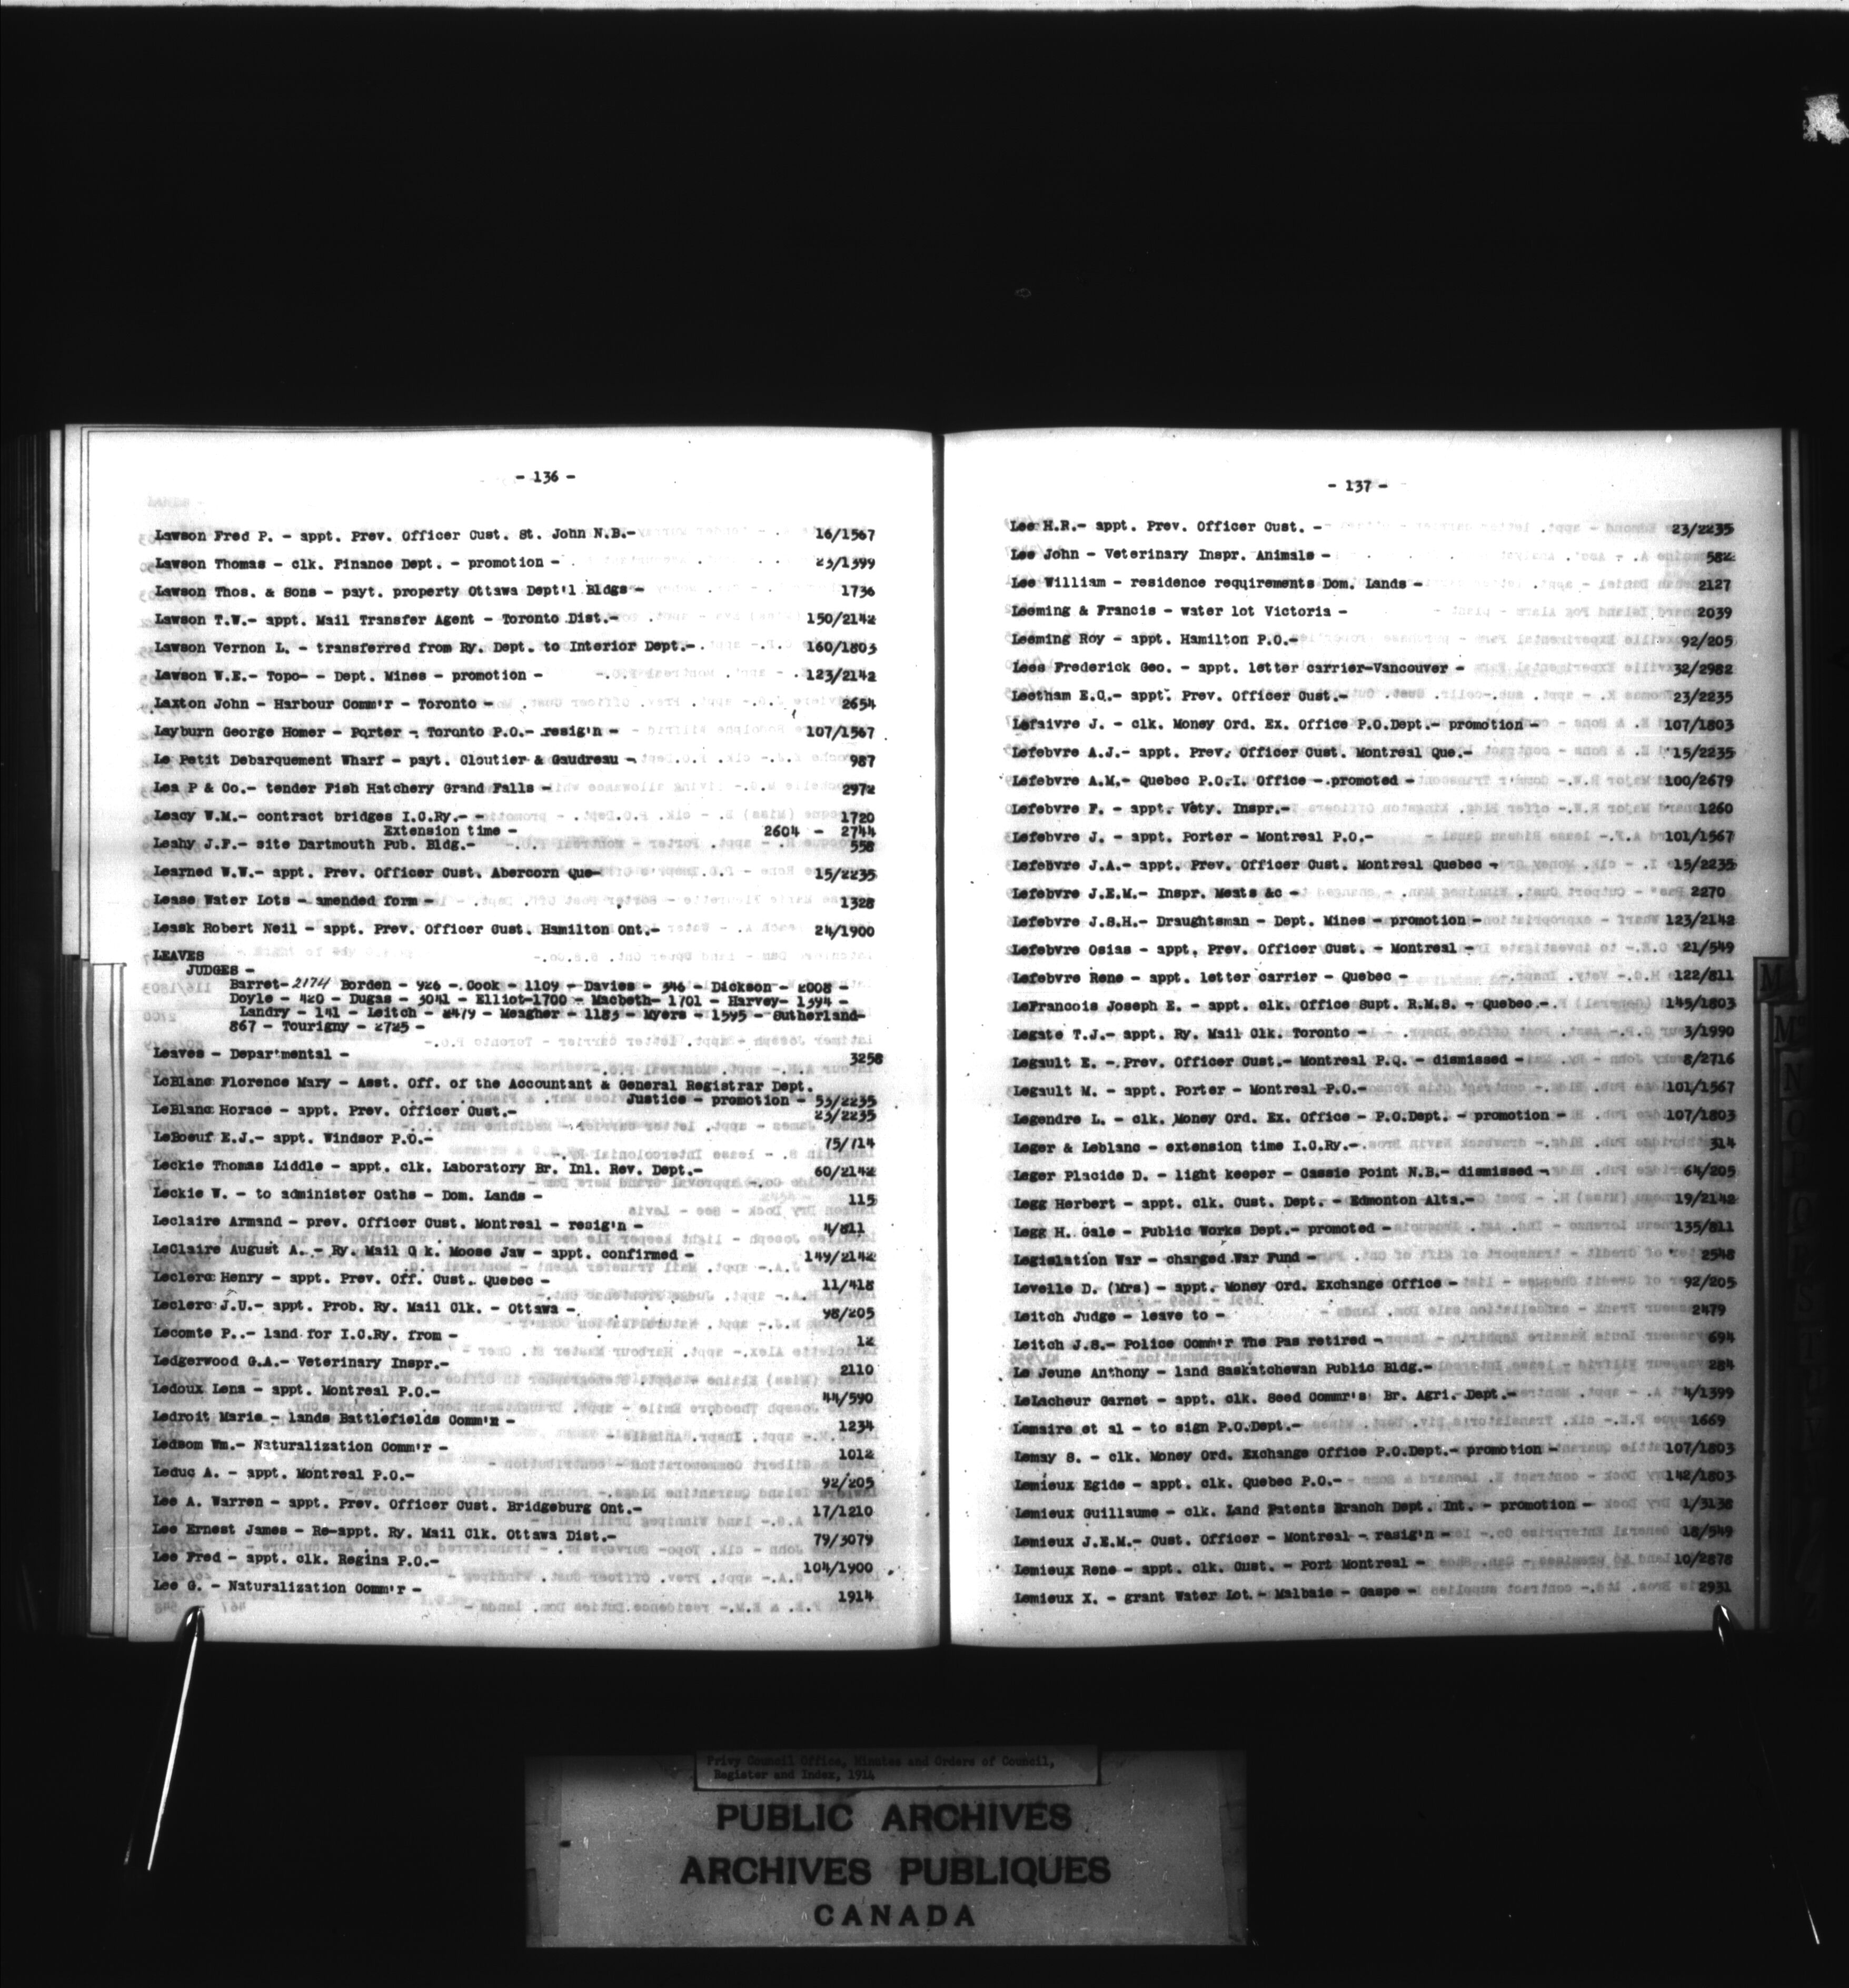 - 136 -
Lawson Fred P. - appt. Prev. Officer Cust. St. John N.B.- 16/1567
Lawson Thomas - clk. Finance Dept. - promotion - 23/1399
Lawson Thos. & Sons - payt. property Ottawa Dept'l Bldgs - 1736
Lawson T.W.- appt. Mail Transfer Agent - Toronto Dist.- 150/2142
Lawson Vernon L. - transferred from Ry. Dept. to Interior Dept.- 160/1803
Lawson W.E.- Topo- - Dept. Mines - promotion - 123/2142
Laxton John - Harbour Comm'r - Toronto - 2654
Layburn George Homer - Porter - Toronto P.O.- resig'n - 107/1567
Le Petit Debarquement Wharf - payt. Cloutier & Gaudreau - 987
Lea P & Co.- tender Fish Hatchery Grand Falls - 2972
Leacy W.M.- contract bridges I.C.Ry.- - 1720
Extension time - 2604 - 2744
Leahy J.F.- site Dartmouth Pub. Bldg.- 558
Learned W.W.- appt. Prev. Officer Cust. Abercorn Que- 15/2235
Lease Water Lots - amended form - 1328
Leask Robert Neil - appt. Prev. Officer Cust. Hamilton Ont.- 24/1900
LEAVES
JUDGES -
Barret- 2174 Borden - 926 - Cook - 1109 - Davies - 346 - Dickson - 2008 -
Doyle - 420 - Dugas - 3041 - Elliot-1700 - Macbeth- 1701 - Harvey- 1394 -
Landry - 141 - Leitch - 2479 - Meagher - 1183 - Myers - 1595 - Sutherland-
867 - Tourigny - 2725 -
Leaves - Depar'mental - 3258
LeBlanc Florence Mary - Asst. Off. of the Accountant & General Registrar Dept.
Justice - promotion - 53/2235
LeBlanc Horace - appt. Prev. Officer Cust.- 23/2235
LeBoeuf E.J.- appt. Windsor P.O.- 75/714
Leckie Thomas Liddle - appt. clk. Laboratory Br. Inl. Rev. Dept.- 60/2142
Leckie W. - to administer Oaths - Dom. Lands - 115
Leclaire Armand - prev. Officer Cust. Montreal - resig'n - 4/811
LeClaire August A. - Ry. Mail C k. Moose Jaw - appt. confirmed - 149/2142
Leclerc Henry - appt. Prev. Off. Cust. Quebec - 11/418
Leclerc J.U.- appt. Prob. Ry. Mail Clk. - Ottawa - 98/205
Lecomte P..- land for I.C.Ry. from - 12
Ledgerwood G.A.- Veterinary Inspr.- 2110
Ledoux Lena - appt. Montreal P.O.- 44/590
Ledroit Marie - lands Battlefields Comm'n - 1234
Ledsom Wm.- Naturalization Comm'r - 1012
Leduc A. - appt. Montreal P.O.- 92/205
Lee A. Warren - appt. Prev. Officer Cust. Bridgeburg Ont.- 17/1210
Lee Ernest James - Re-appt. Ry. Mail Clk. Ottawa Dist.- 79/3079
Lee Fred - appt. clk. Regina P.O.- 104/1900
Lee G. - Naturalization Comm'r - 1914
- 137 -
Lee H.R.- appt. Prev. Officer Cust. - 23/2235
Lee John - Veterinary Inspr. Animals - 582
Lee William - residence requirements Dom. Lands - 2127
Leeming & Francis - water lot Victoria - 2039
Leeming Roy - appt. Hamilton P.O.- 92/205
Lees Frederick Geo. - appt. letter carrier-Vancouver - 32/2982
Leetham E.Q.- appt. Prev. Officer Cust.- 23/2235
Lefaivre J. - clk. Money Ord. Ex. Office P.O.Dept.- promotion - 107/1803
Lefebvre A.J.- appt. Prev. Officer Cust. Montreal Que.- 15/2235
Lefebvre A.M.- Quebec P.O.I. Office - promoted - 100/2679
Lefebvre F. - appt. Vety. Inspr.- 1260
Lefebvre J. - appt. Porter - Montreal P.O.- 101/1567
Lefebvre J.A.- appt. Prev. Officer Cust. Montreal Quebec - 15/2235
Lefebvre J.E.M.- Inspr. Meats &c - 2270
Lefebvre J.S.H.- Draughtsman - Dept. Mines - promotion - 123/2142
Lefebvre Osias - appt. Prev. Officer Cust. - Montreal - 21/549
Lefebvre Rene - appt. letter carrier - Quebec - 122/811
LeFrancois Joseph E. - appt. clk. Office Supt. R.M.S. - Quebec.- 145/1803
Legate T.J.- appt. Ry. Mail Clk. Toronto - 3/1990
Legault E. - Prev. Officer Cust.- Montreal P.Q. - dismissed - 8/2716
Legault M. - appt. Porter - Montreal P.O.- 101/1567
Legendre L. - clk. Money Ord. Ex. Office - P.O.Dept. - promotion - 107/1803
Leger & Leblanc - extension time I.C.Ry.- 314
Leger Placide D. - light keeper - Cassie Point N.B.- dismissed - 64/205
Legg Herbert - appt. clk. Cust. Dept. - Edmonton Alta.- 19/2142
Legg H. Gale - Public Works Dept.- promoted - 135/811
Legislation War - charged War Fund - 2548
Levelle D. (Mrs) - appt. Money Ord. Exchange Office - 92/205
Leitch Judge - leave to - 2479
Leitch J.S.- Police Comm'r The Pas retired - 694
Le Jeune Anthony - land Saskatchewan Public Bldg.- 284
LeLacheur Garnet - appt. clk. Seed Commr's Br. Agri. Dept.- 4/1399
Lemaire et al - to sign P.O.Dept.- 1669
Lemay S. - clk. Money Ord. Exchange Office P.O.Dept.- promotion - 107/1803
Lemieux Egide - appt. clk. Quebec P.O.- 142/1803
Lemieux Guillaume - clk. Land Patents Branch Dept. Int. - promotion - 1/3138
Lemieux J.E.M.- Cust. Officer - Montreal - resig'n - 18/549
Lemieux Rene - appt. clk. Cust. - Port Montreal - 10/2878
Lemieux X. - grant Water Lot.- Malbaie - Gaspe - 2931
M
Mc
N
O
Privy Council Office, Minutes and Orders of Council,
Register and Index, 1914
PUBLIC ARCHIVES
ARCHIVES PUBLIQUES
CANADA